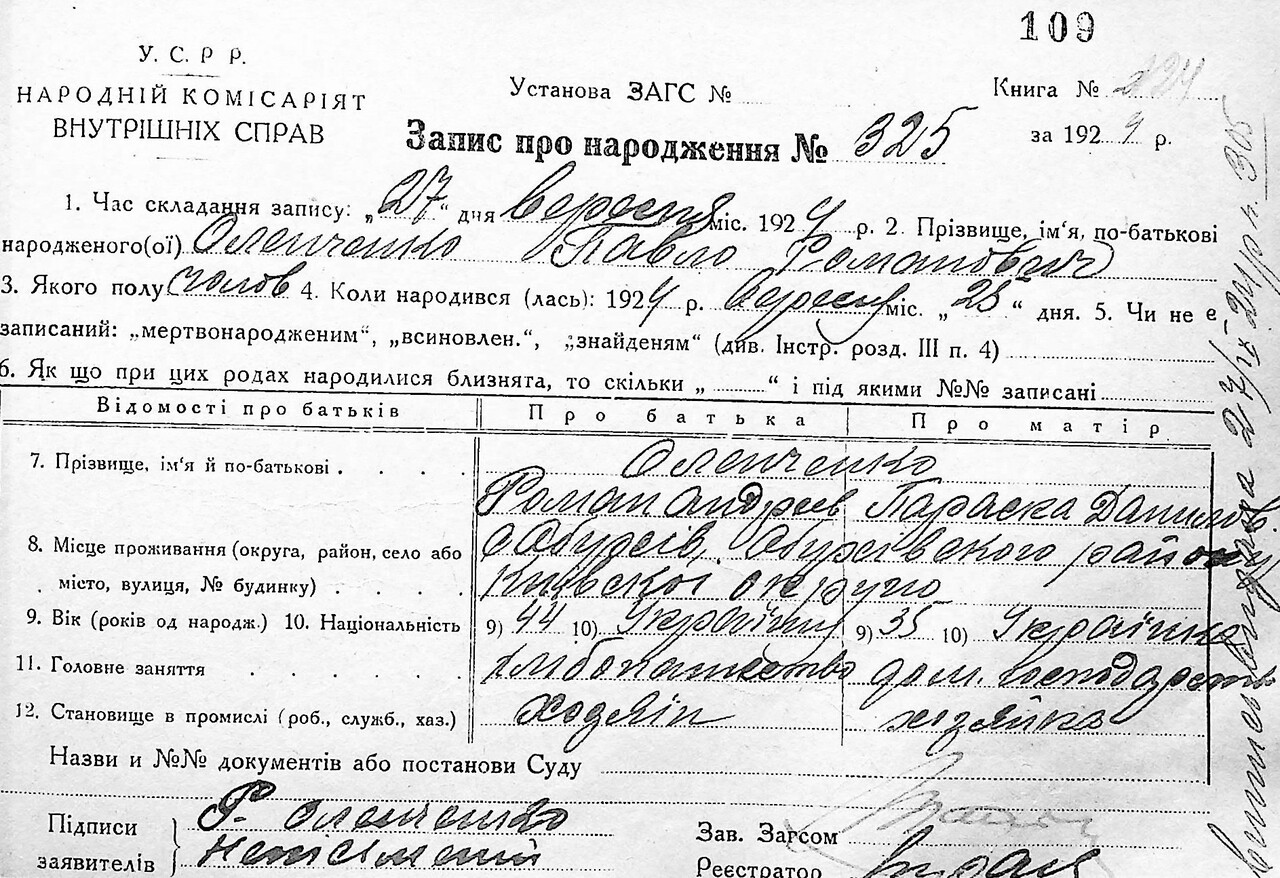 109
У. С. Р Р.
НАРОДНІЙ КОМІСАРІЯТ
ВНУТРІШНІХ СПРАВ
Установа ЗАГС №
Книга № 224
за 1924 р.
Запис про народження № 325
1. Час складання запису: „27“ дня вересня міс. 1924 р. 2. Прізвище, ім‘я, по-батькові
народженого(ої) Оленченко Павло Романович
3. Якого полу чолов 4. Коли народився (лась): 1924 р. вересня міс. „25“ дня. 5. Чи не є
записаний: „мертвонародженим“, „всиновлен.“, „знайденям“ (див. Інстр. розд. III п. 4)
6. Як що при цих родах народилися близнята, то скільки „ “ і під якими №№ записані
Відомості про батьків Про батька Про матір
7. Прізвище, ім‘я й по-батькові . . . . Оленченко
Роман Андреев Параска Данилів
8. Місце проживання (округа, район, село або
місто, вулиця, № будинку) . . . .
с Обухів, Обухівського району
Київської округи
9. Вік (років од народж.) 10. Національність 9) 44 10) Українець 9) 35 10) Українка
11. Головне заняття . . . . . хлібопашество дом. господарство
12. Становище в промислі (роб., служб., хаз.) хозяїн хозяйка
Назви и №№ документів або постанови Суду
Підписи
заявителів
Р. Оленченко
неписменний
Зав. Загсом
Реєстратор
27/IX 24 р н. 305